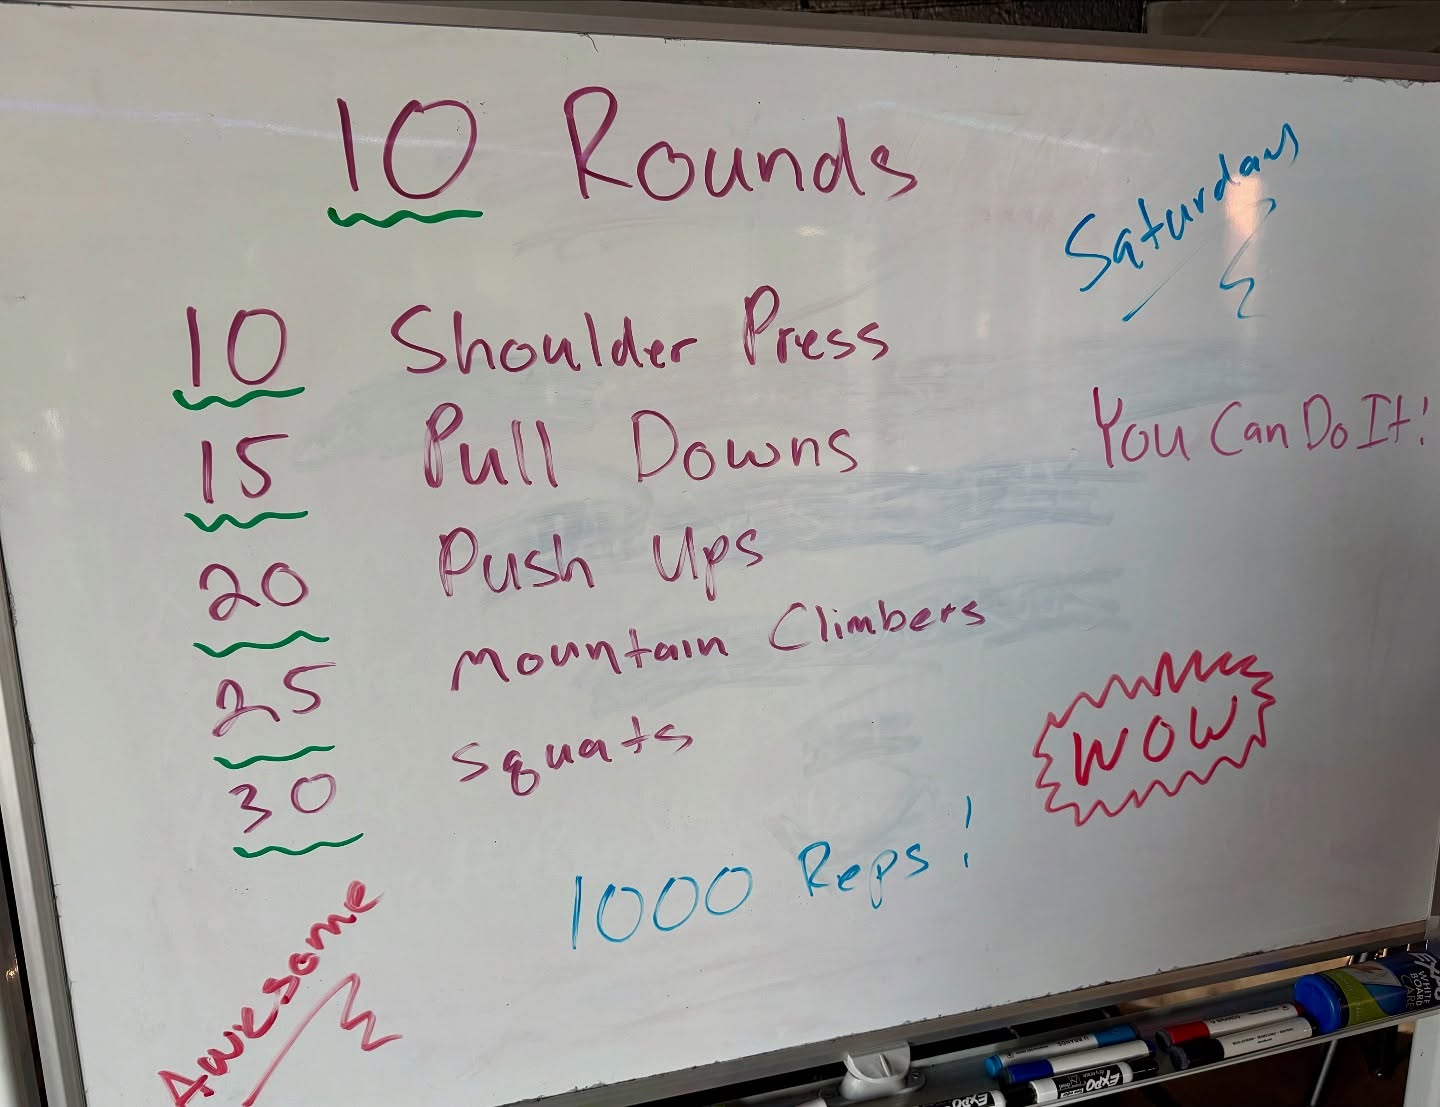 10 Rounds
Saturdays
10 Shoulder Press
15 Pull Downs
You Can Do It!
20 Push Ups
25 Mountain Climbers
30 Squats
WOW
1000 Reps!
Awesome
EXPO
WHITE
BOARD
CARE
EXPO
EXPO